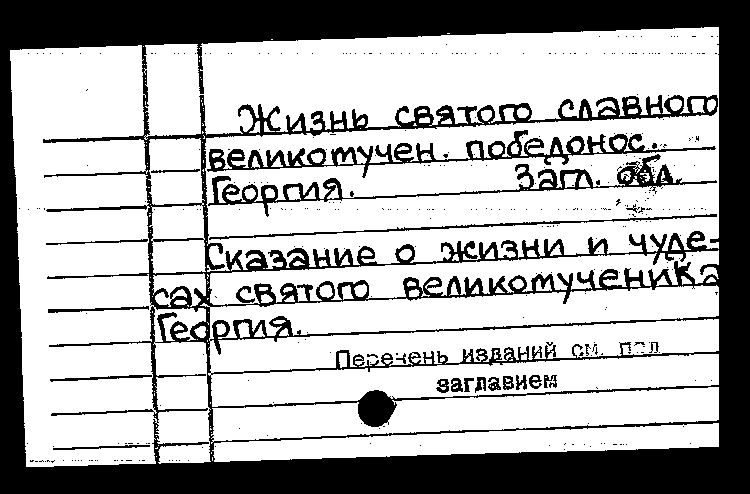 Жизнь святого славного
великомучен. победонос.
Георгия. Загл. обл.
Сказание о жизни и чуде-
сах святого великомученика
Георгия.
Перечень изданий см. под
заглавием